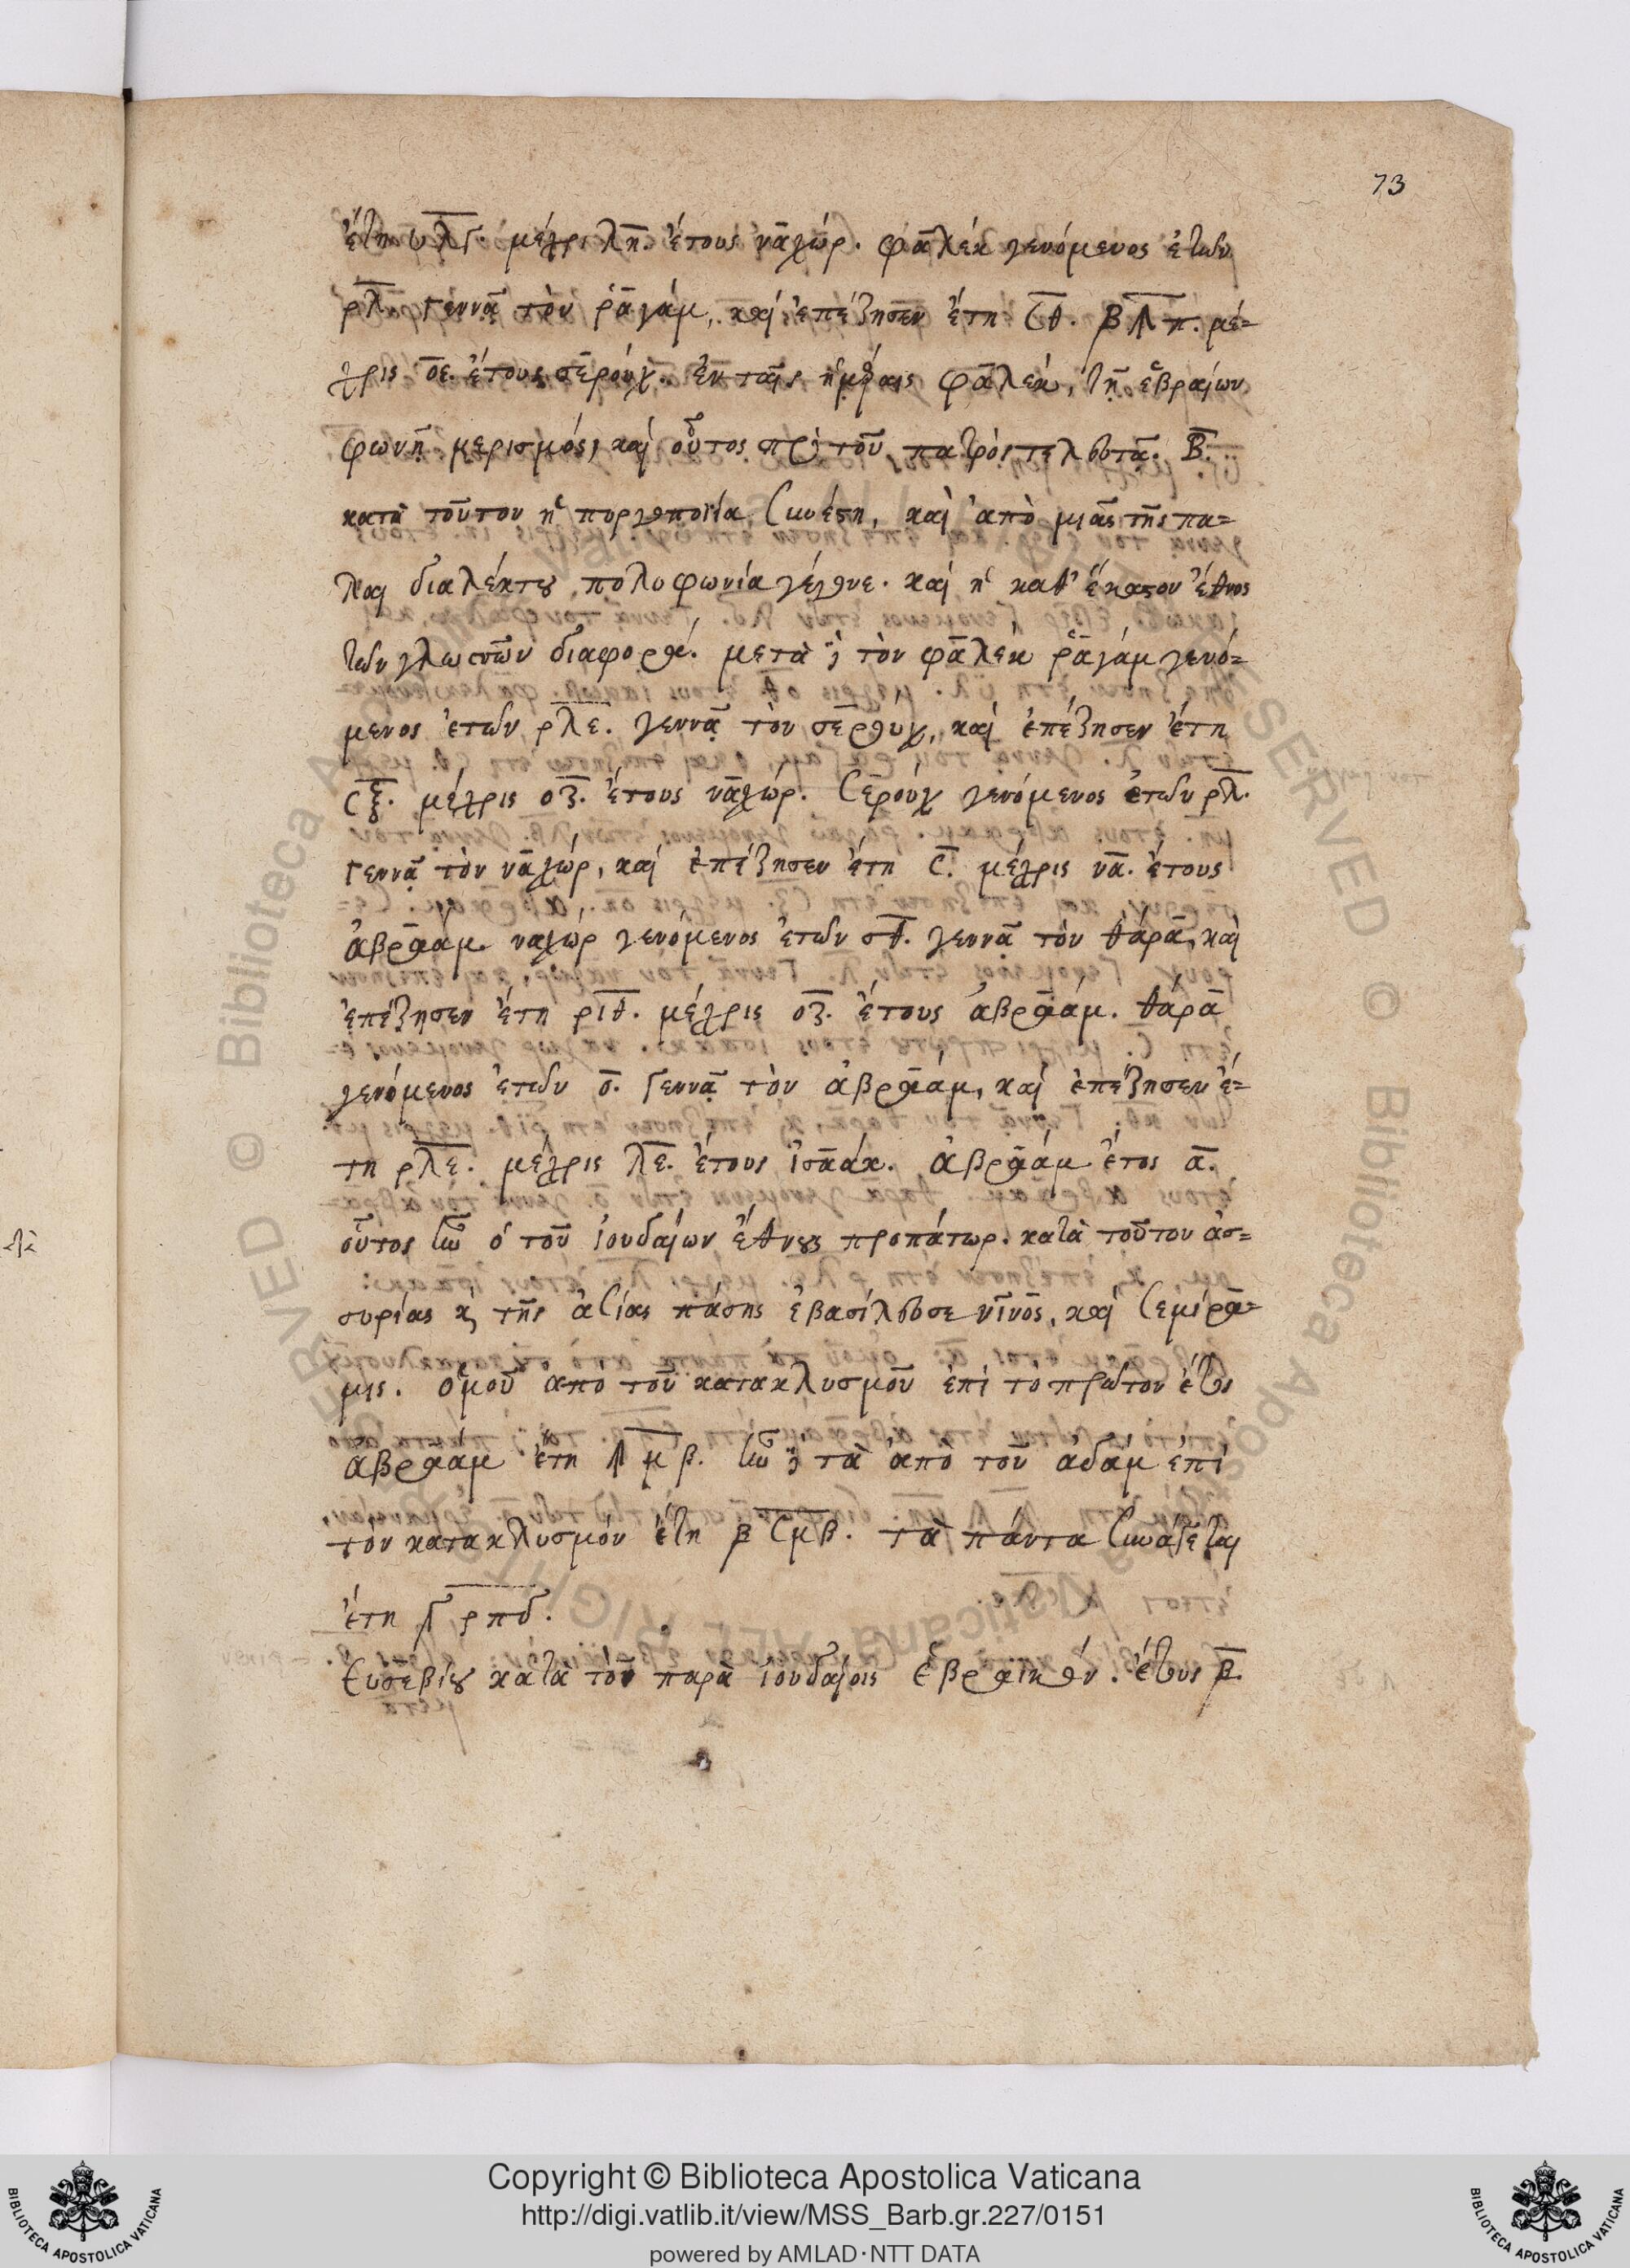 73
ἔτη υλγ. μέχρι λη. ἔτους ναχώρ. φαλὲκ γενόμενος ἐτῶν
ρλ. γεννᾷ τὸν ῥαγάμ, καὶ ἐπέζησεν ἔτη σθ. μέ-
χρις οε. ἔτους σερούχ. ἐν ταῖς ἡμέραις φαλὲκ, τῇ ἑβραίων
φωνῇ μερισμός, καὶ οὗτος πρὸ τοῦ πατρὸς τελευτᾷ. β.
κατὰ τοῦτον ἡ πυργοποιία συνέστη, καὶ ἀπὸ μιᾶς τῆς πά-
λαι διαλέκτου πολυφωνία γέγονε. καὶ ἡ καθ' ἕκαστον ἔθνος
τῶν γλωσσῶν διαφορά. μετὰ δὲ τὸν φαλὲκ ῥαγάμ γενό-
μενος ἐτῶν ρλε. γεννᾷ τὸν σερούχ, καὶ ἐπέζησεν ἔτη
σξ. μέχρις οζ. ἔτους ναχώρ. σερούχ γενόμενος ἐτῶν ρλ.
γεννᾷ τὸν ναχώρ, καὶ ἐπέζησεν ἔτη σ. μέχρις να. ἔτους
ἀβραάμ. ναχώρ γενόμενος ἐτῶν οθ. γεννᾷ τὸν θάρα, καὶ
ἐπέζησεν ἔτη ριθ. μέχρις οζ. ἔτους ἀβραάμ. θάρα
γενόμενος ἐτῶν ο. γεννᾷ τὸν ἀβραάμ, καὶ ἐπέζησεν ἔ-
τη ρλε. μέχρις λε. ἔτους ἰσαάκ. ἀβραάμ ἔτος α.
οὗτος ἦν ὁ τοῦ ἰουδαίων ἔθνους προπάτωρ. κατὰ τοῦτον ἀσ-
συρίας καὶ τῆς ἀσίας πάσης ἐβασίλευσε νῖνος, καὶ σεμίρα-
μις. ὁμοῦ ἀπὸ τοῦ κατακλυσμοῦ ἐπὶ τὸ πρῶτον ἔτος
ἀβραάμ ἔτη ϡμβ. ἦν δὲ τὰ ἀπὸ τοῦ ἀδάμ ἐπὶ
τὸν κατακλυσμόν ἔτη βσμβ. τὰ πάντα συνάγεται
ἔτη γρπδ.
Εὐσεβίου κατὰ τὸν παρὰ ἰουδαίοις ἑβραϊκόν. ἔτους β.
Copyright © Biblioteca Apostolica Vaticana
http://digi.vatlib.it/view/MSS_Barb.gr.227/0151
powered by AMLAD·NTT DATA
BIBLIOTECA APOSTOLICA VATICANA
BIBLIOTECA APOSTOLICA VATICANA